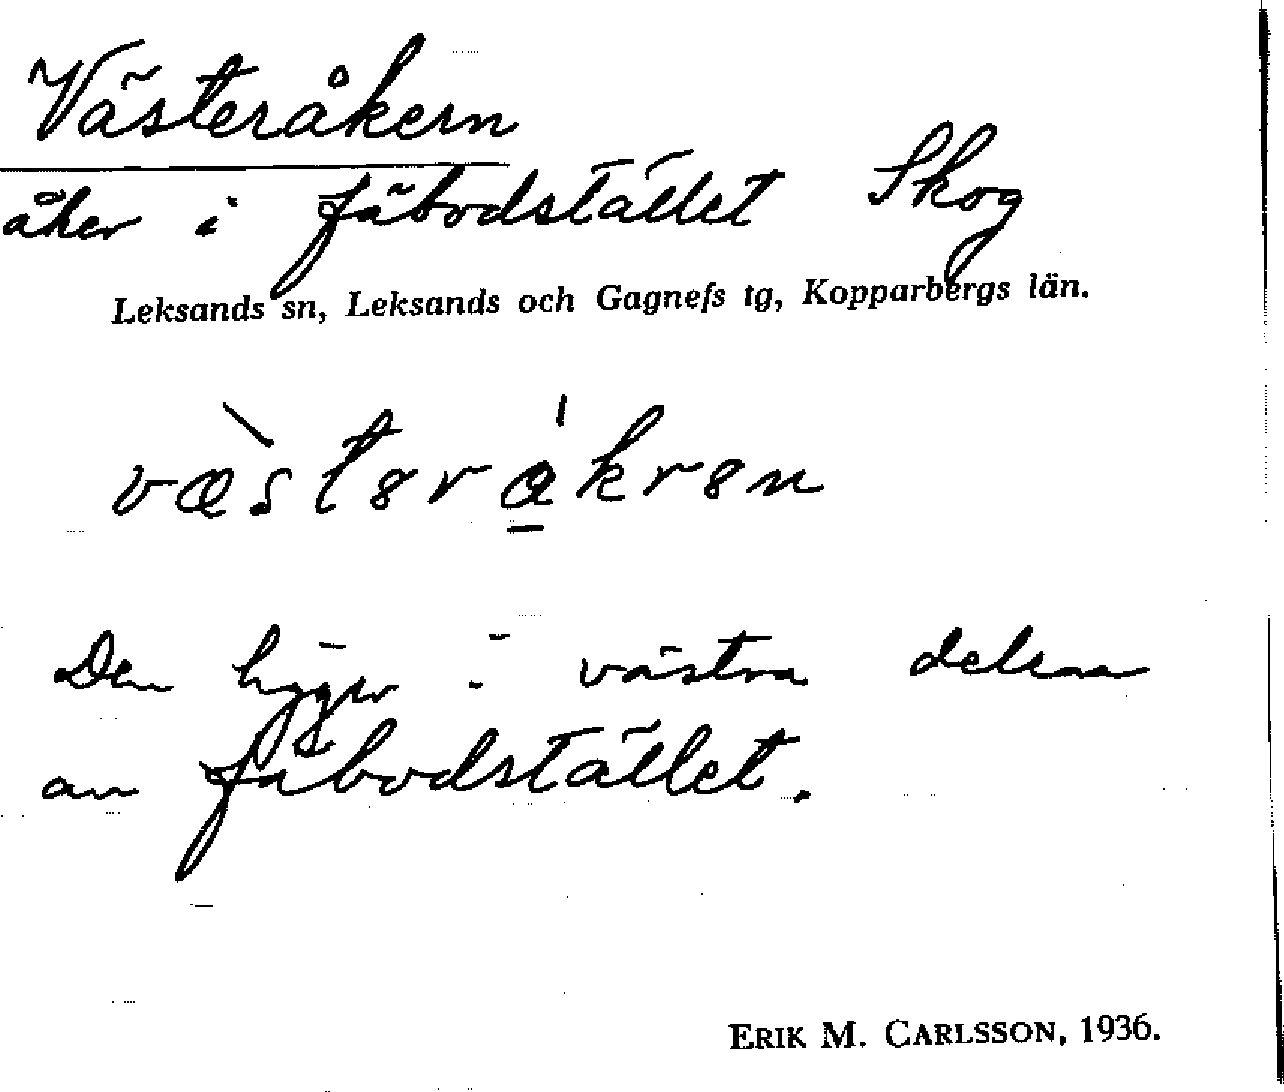 Västeråkern
åker i fäbodstället Skog
Leksands sn, Leksands och Gagnefs tg, Kopparbergs län.
væ̀stərά̲krən
Den ligger i västra delen
av fäbodstället.
ERIK M. CARLSSON, 1936.